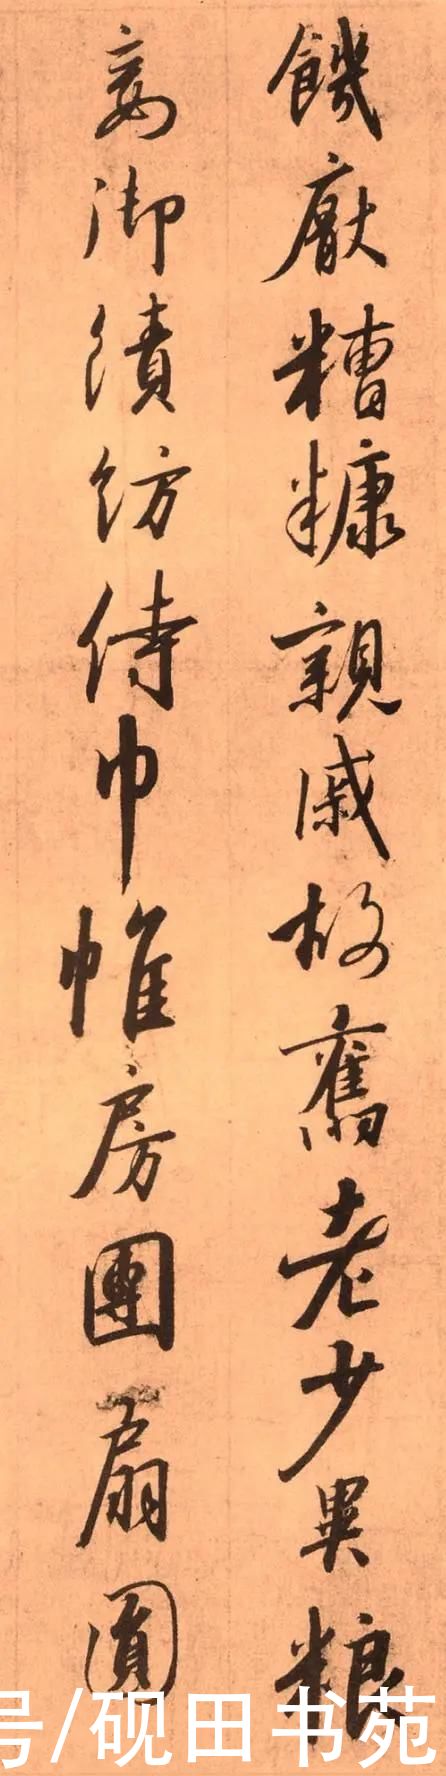 饑厭糟糠親戚故舊老少異粮
妾御績紡侍巾帷房團扇圓
号/砚田书苑